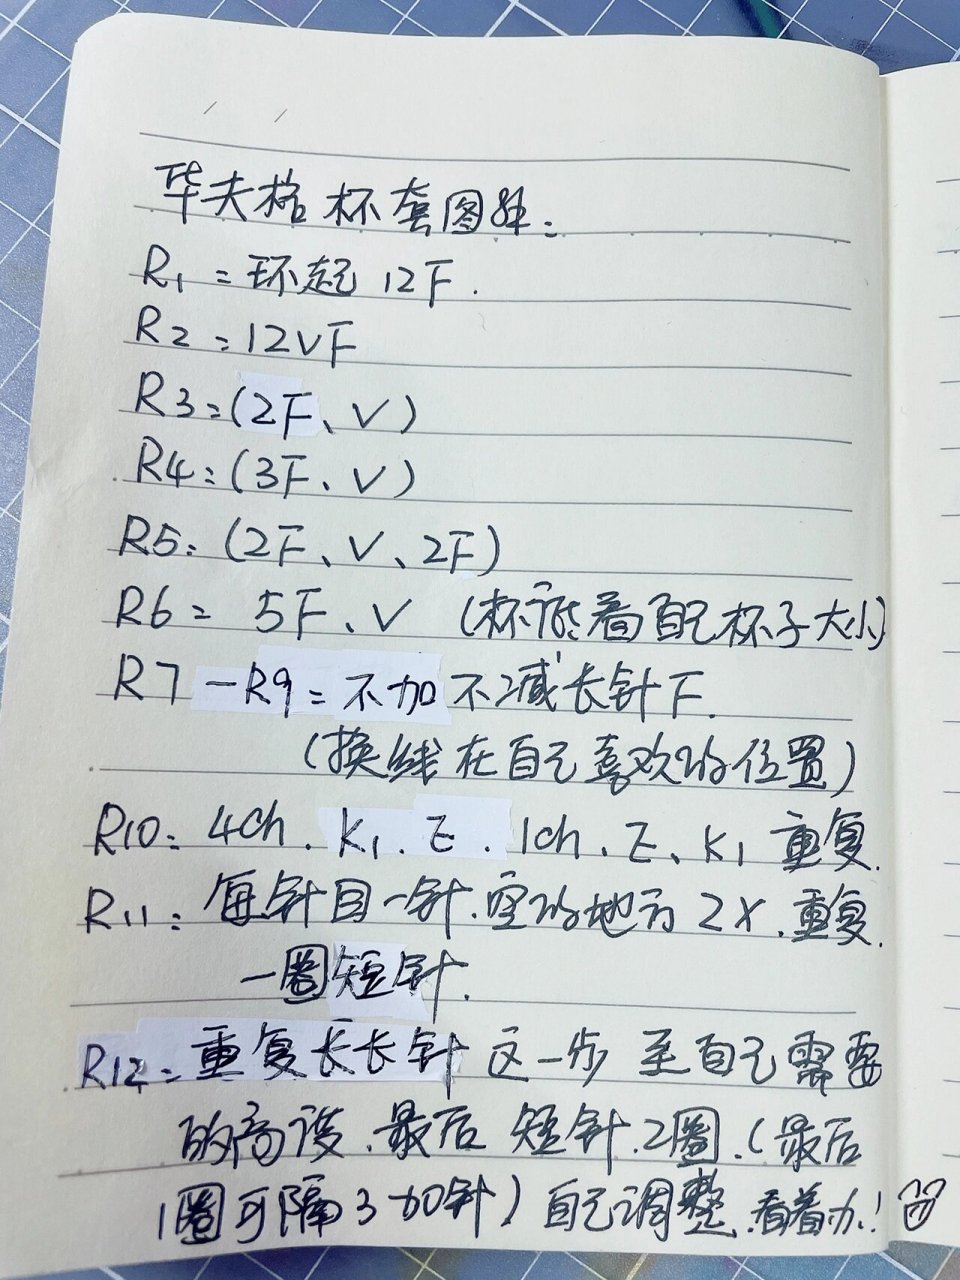 华夫格杯套图解:
R1=环起12F.
R2=12VF
R3=(2F、V)
R4:(3F、V)
R5:(2F、V、2F)
R6= 5F、V (杯底看自己杯子大小)
R7-R9=不加不减长针F.
(换线在自己喜欢的位置)
R10:4ch.K1.E.1ch、E、K1重复.
R11:每针目一针.空的地方2X.重复.
一圈短针.
R12=重复长长针这一步至自己需要
的高度.最后短针.2圈.(最后
1圈可隔3加针)自己调整.看着办!